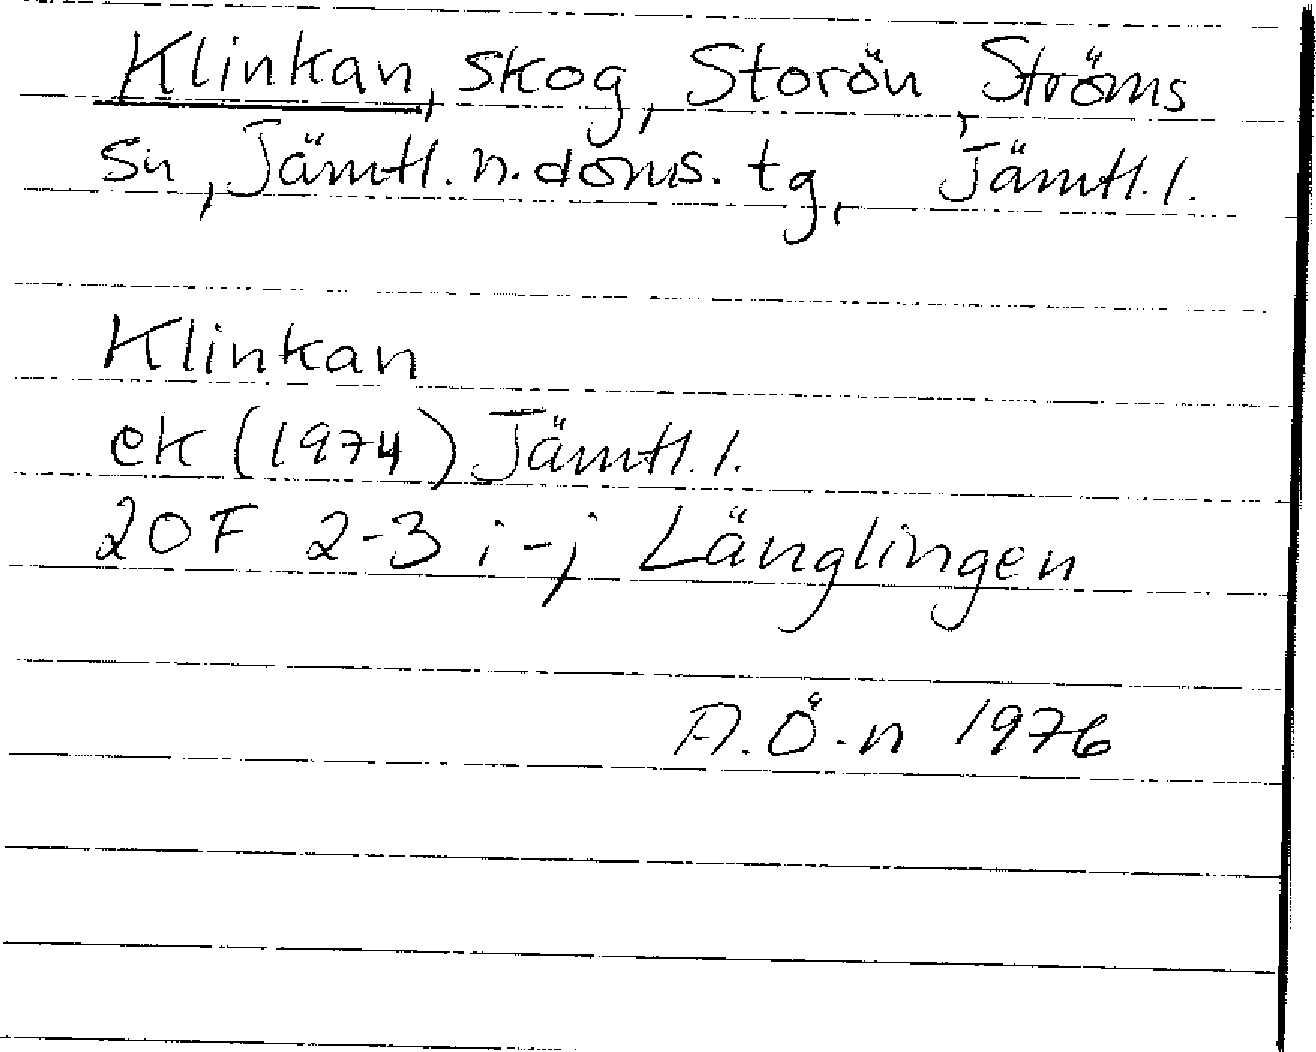 Klinkan, skog, Storön, Ströms
sn, Jämtl. n. doms. tg, Jämtl. l.
Klinkan
ek (1974) Jämtl. l.
20F 2-3 i-j Länglingen
A. Ö-n 1976